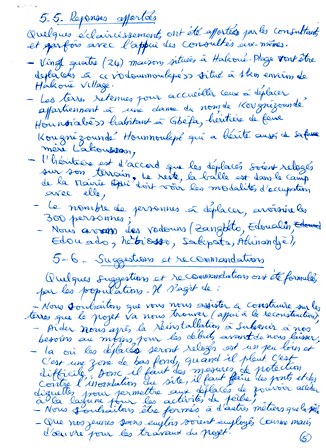 5.5. Réponses apportées
Quelques éclaircissements ont été apportés par les consultants
et parfois avec l'appui des consultés eux-mêmes.
- Vingt quatre (24) maisons situées à Hakoué-Plage vont être
déplacés à situé à 1km environ de
Hakoué village.
- Les terres retenues pour accueillir ceux à déplacer
appartiennent à une dame du nom de
habitant à Gbèfa, héritière de feue
qui a hérité aussi de sa feue
mère
- L'héritière est d'accord que les déplacés soient relogés
sur son terrain. Le reste, la balle est dans le camp
de la Mairie qui doit voir les modalités d'occupation
avec elle,
- Le nombre de personnes à déplacer, avoisine les
300 personnes ;
- Nous avons des vodouns (Zangbéto,
5-6- Suggestions et recommandations
Quelques suggestions et recommandations ont été formulées
par les populations. Il s'agit de :
- Nous souhaitons que vous nous assister à construire sur les
terres que le projet va nous trouver (appui à la reconstruction)
- Aider nous après la réinstallation à subvenir à nos
besoins au moins pour les débuts avant de nous laisser,
- Là où les déplacés seront relogés est un peu loin et
c'est une zone de bas fonds, quand il pleut c'est
difficile, donc il faut des mesures de protection
contre l'inondation du site, il faut faire des ponts et des
diguettes pour permettre aux déplacés de pouvoir accéder
à la lagune pour les activités de pêche,
- Nous souhaitons être formés à d'autres métiers que la pêche
- Que nos jeunes sans emplois soient employés comme main
d'œuvre pour les travaux du projet